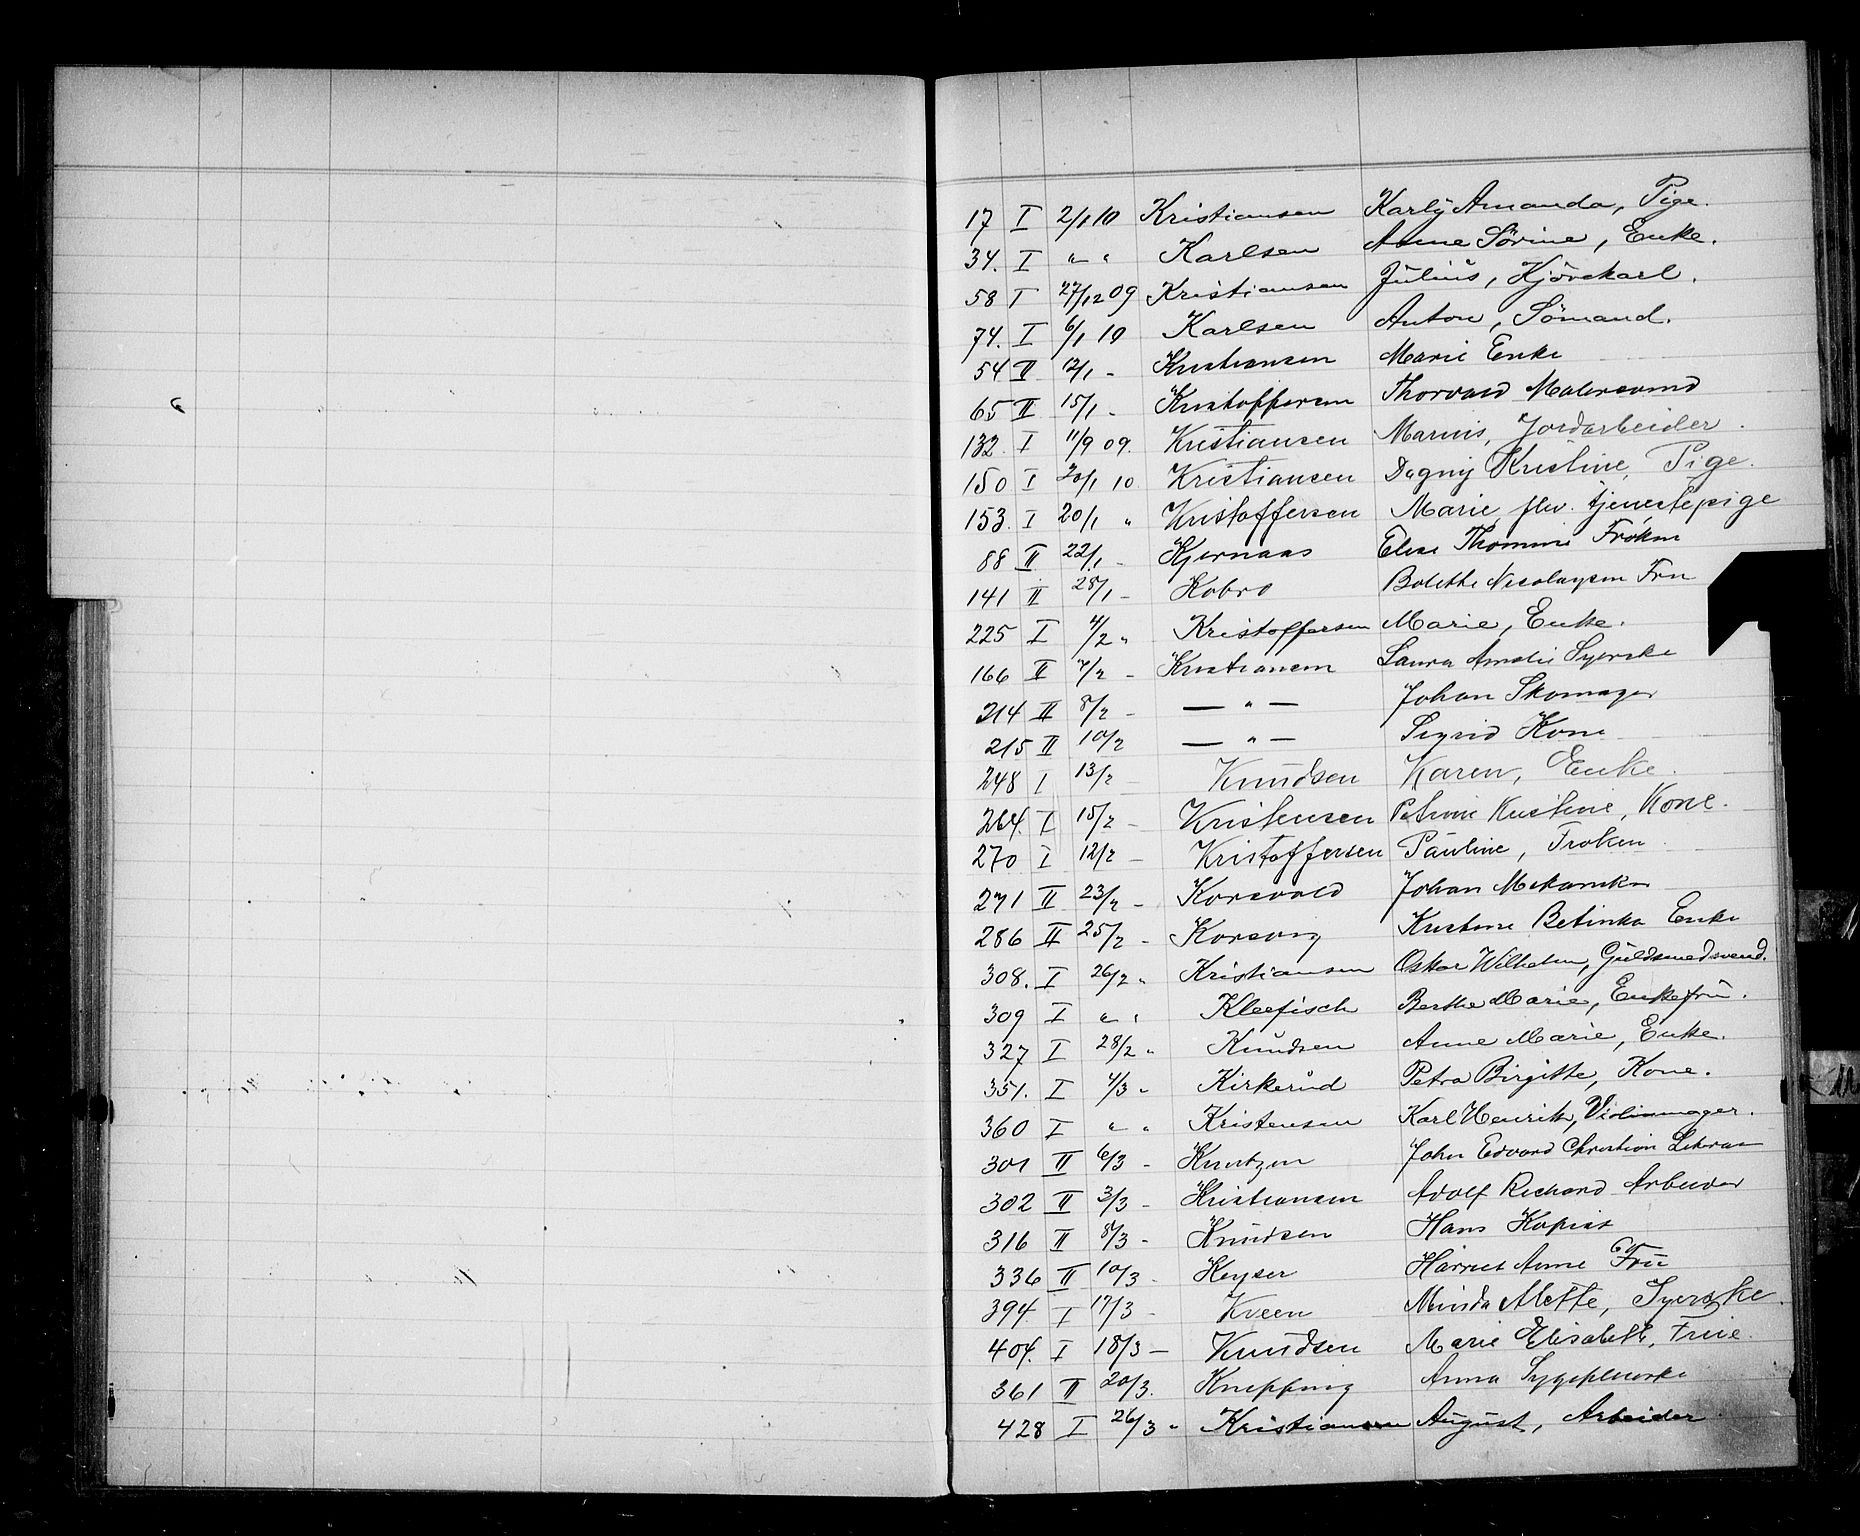 17 I 2/1 10 Kristiansen Karly Amanda, Pige.
34. I " " Karlsen Anne Sørine, Enke.
58 I 27/12 09 Kristiansen Julius, Kjørekarl.
74. I 6/1 10 Karlsen Anton, Sömand.
54 II 12/1 - Kristiansen Marie Enke
65 II 15/1 - Kristoffersen Thorvald Malersvend
132. I 11/9 09. Kristiansen Marius, Jordarbeider.
150 I 20/1 10 Kristiansen Dagny Kristine, Pige.
153. I 20/1 " Kristoffersen Marie, fhv. tjenestepige
88 II 22/1 - Kjernaas Elise Thomine Frøken
141 II 28/1 - Kobro Bolette Nicolaysen Fru
225 I 4/2 " Kristoffersen Marie, Enke.
166 II 7/2 - Kristiansen Laura Amalie Syerske
214 II 8/2 - — " — Johan Skomager
215 II 10/2 — " — Sigrid Kone
248 I 13/2 - Knudsen Karen, Enke.
264. I 15/2 - Kristensen Petrine Kristine, Kone.
270 I 12/2 - Kristoffersen Pauline, Frøken
271 II 23/2 - Korsvold Johan Mekaniker
286 II 25/2 - Korsvig Kristine Betinka Enke
308. I 26/2 " Kristiansen Oskar Wilhelm, Guldsmedsvend.
309 I " " Kleefisch Berthe Marie, Enkefru.
327 I 28/2 " Knudsen Anne Marie, Enke.
351. I 4/3 - Kirkerud Petra Birgitte, Kone.
360 I " " Kristensen Karl Henrik, Violinmager.
301 II 6/3 - Knutzen John Edvard Christian
302 II 3/3 - Kristiansen Adolf Richard Arbeider
316 II 8/3 - Knudsen Hans Kopist
336 II 10/3 - Keyser Harriet Anne Fru
394. I 17/3 - Kveen Minda Alette, Syerske.
404. I 18/3 — Knudsen Marie Elisabeth, Frue.
361 II 20/3. Knipping Anna Sygepleierske
428 I 26/3 " Kristiansen August, Arbeider.